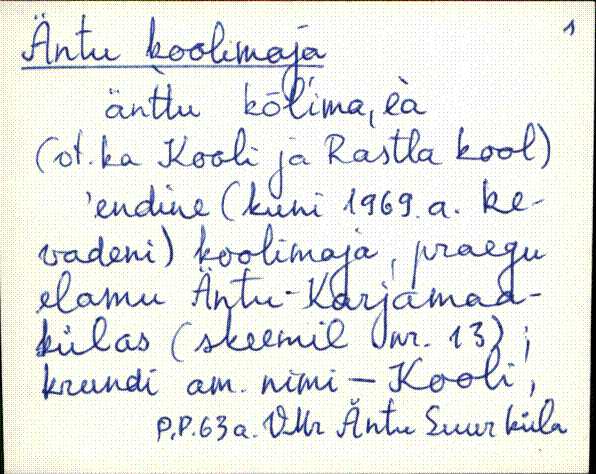 1
Äntu koolimaja
änttu kōlima,èà
(vt. ka Kooli ja Rastla kool)
'endine (kuni 1969. a. ke-
vadeni) koolimaja, praegu
elamu Äntu-Karjamaa-
külas (skeemil nr. 13);
krundi am. nimi – Kooli,
P.P. 63 a. VMr Äntu Suurküla